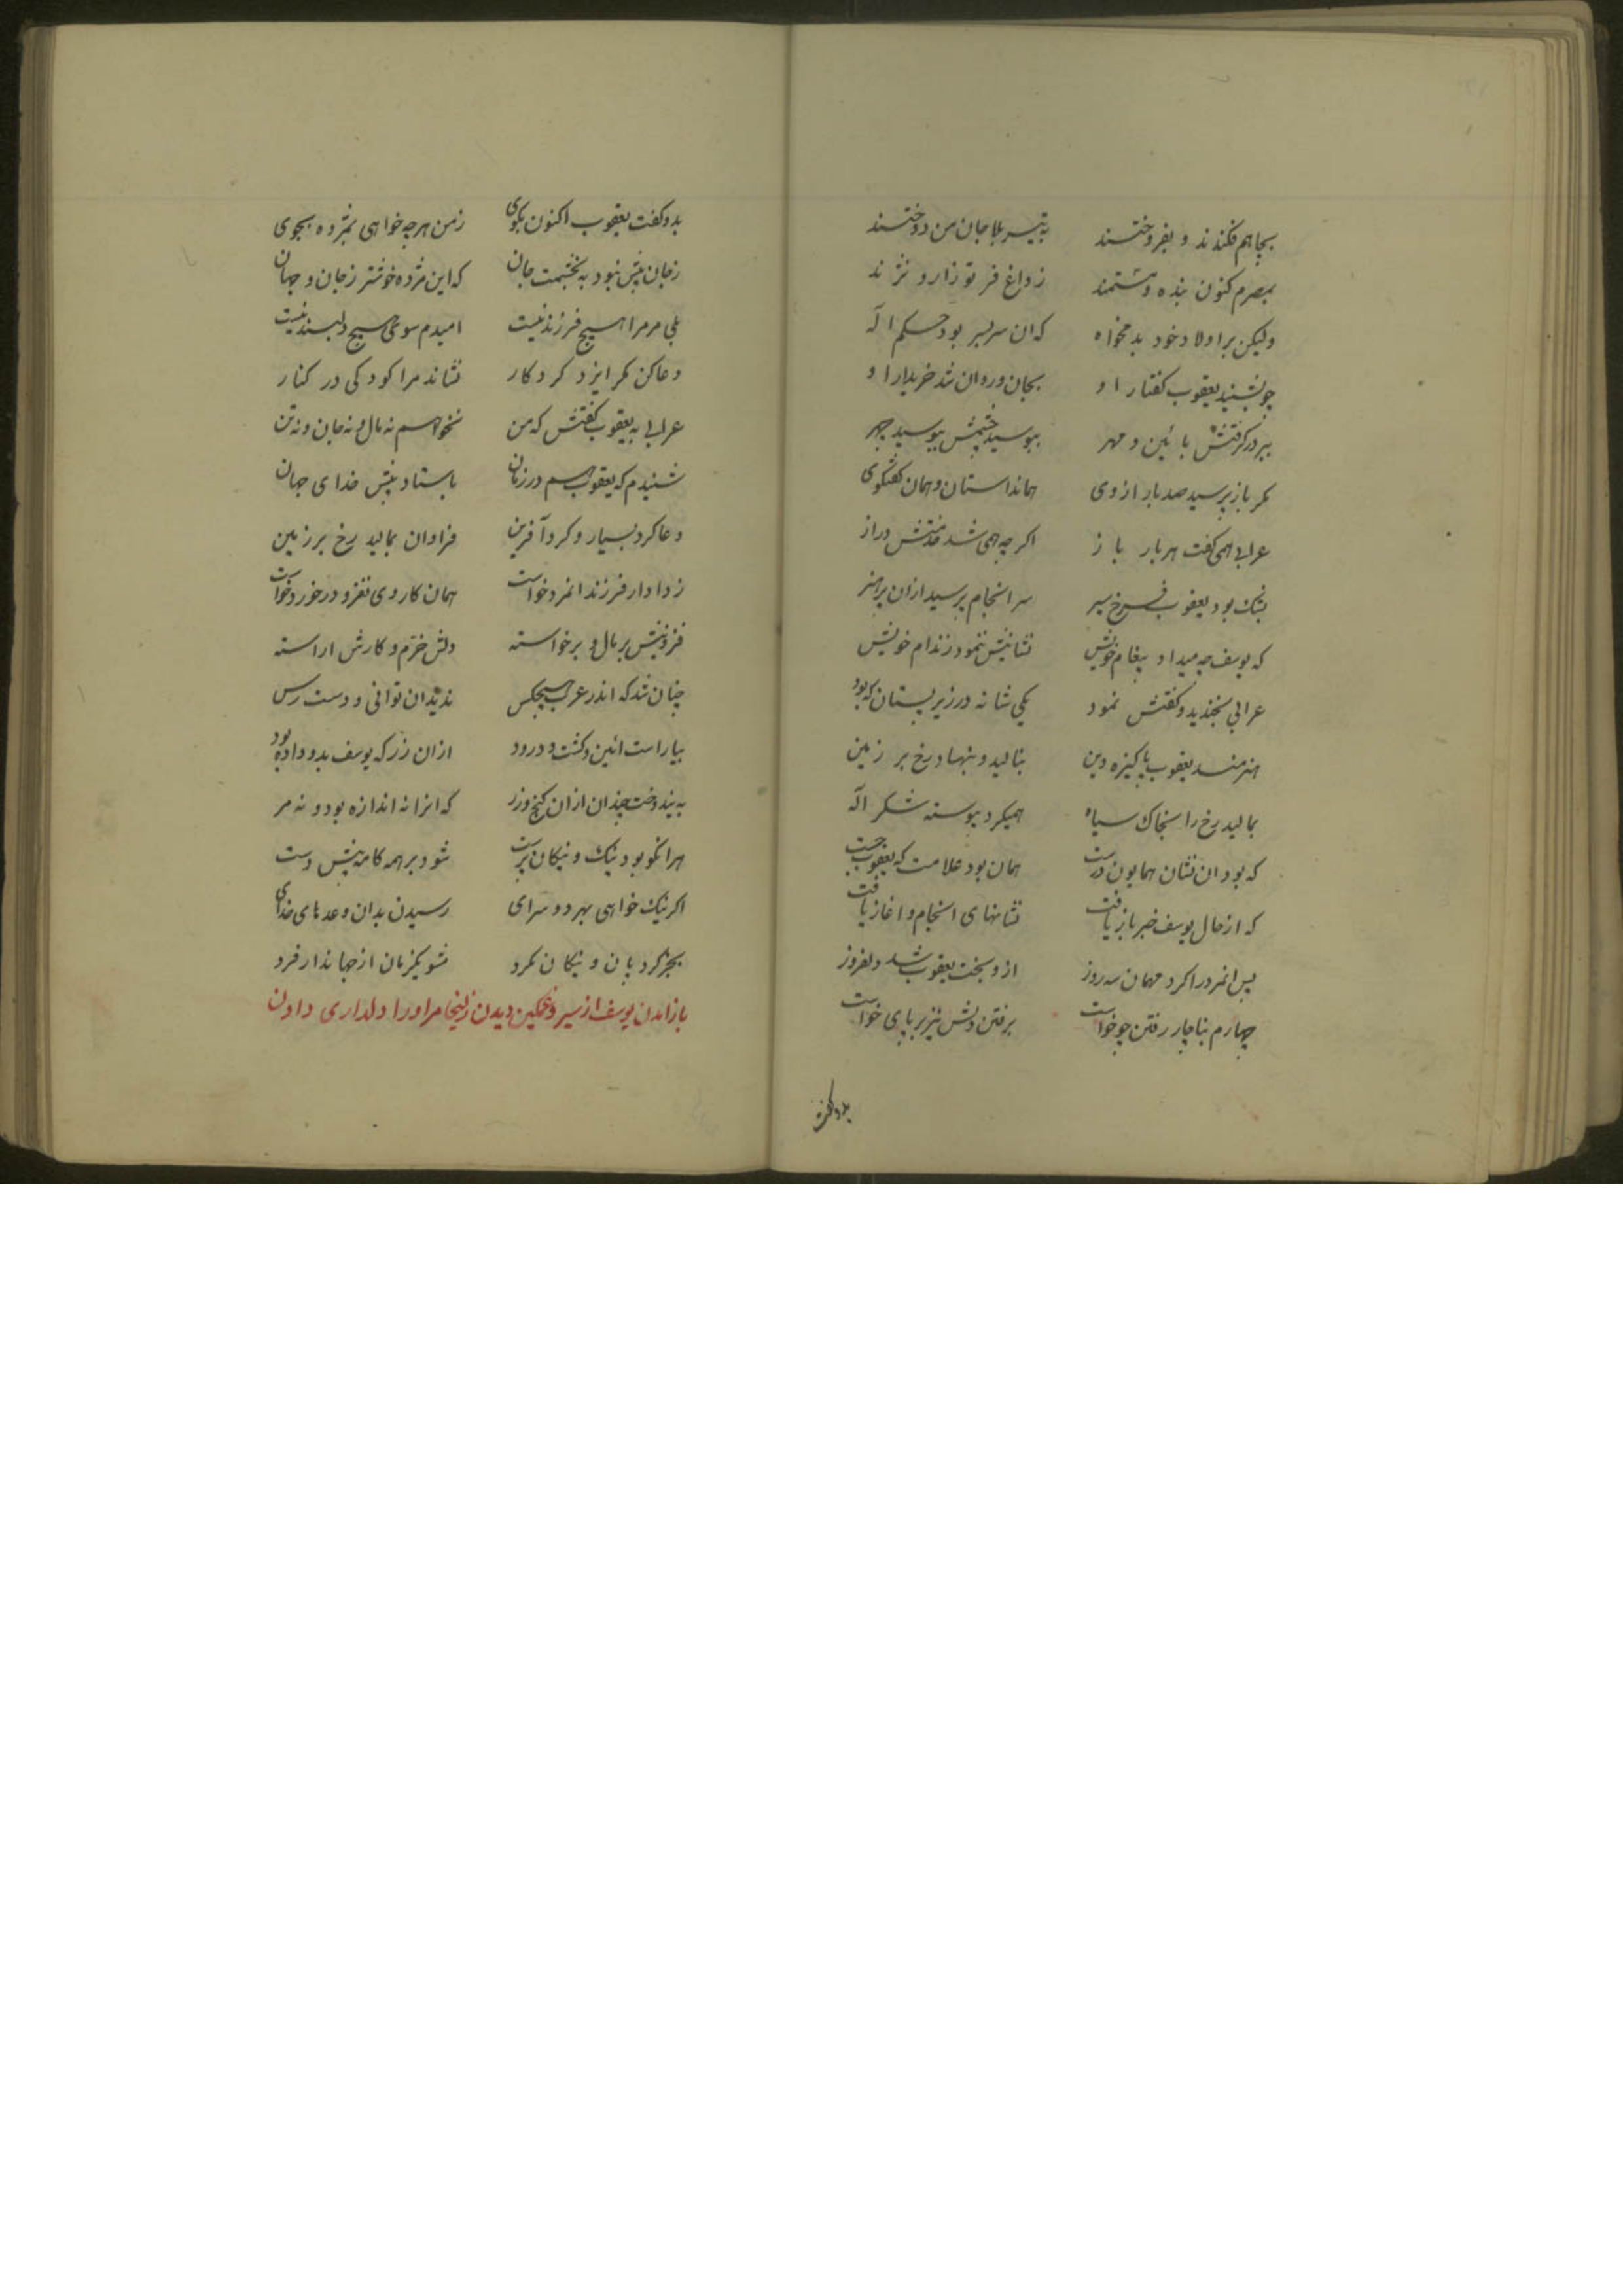 بچاهم فکندند و بفروختند به تیر بلا جان من دوختند
بمصرم کنون بنده و مستمند ز داغ فر تو زار و نژند
ولیکن بر اولاد خود بد مخواه که ان سربسر بود حکم اله
چو بشنید یعقوب گفتار او بجان و روان شد خریدار او
ببر در گرفتش با ئین و مهر ببوسید چشمش ببوسید چهر
مکر باز پرسید صد بار ازوی همانداستان و همان گفتگوی
عرابی همی گفت هر بار باز اگر چه همی شد دراز
بشک بود یعقوب فرخ سیر سر انجام پرسید ازان پر هنر
که یوسف چه میداد پیغام خویش نشانیش ننمود ز ندام خویش
عرابی بخندید و گفتش نمود یکی شانه در زیر پستان که بود
هنرمند یعقوب پاکیزه دین بنالید و بنهاد رخ بر زمین
بمالید رخ را بخاک سیاه همیکرد پیوسته شکر اله
که بود ان نشان همایون درست همان بود علامت که یعقوب جست
که از حال یوسف خبر باز یافت نشانهای انجام و اغاز یافت
پس انمرد را کرد مهمان سه روز ازو بخت یعقوب شد دلفروز
چهارم بناچار رفتن چو خواست برفتن دلش نیز بر پای خواست
بدو گفت
بدو گفت یعقوب اکنون بگوی ز من هر چه خواهی بمژده بجوی
ز جان بیش نبود به بخشمت جان که این مژده خوشتر ز جان و جهان
بلی مر مرا هیچ فرزند نیست امیدم سوی هیچ دلبند نیست
دعا کن مکر ایزد کردکار نشاند مرا کودکی در کنار
عرابی به یعقوب گفتش که من نخواهم نه مال و نه جان و نه تن
شنیدم که یعقوب هم در زمان باستاد پیش خدای جهان
دعا کرد بسیار و کرد آفرین فراوان بمالید رخ بر زمین
ز دادار فرزند انمرد خواست همان کار وی نغز و در خورد خواست
فزونیش بر مال و بر خواسته دلش خرم و کارش اراسته
چنان شد که اندر عرب هیچکس ندیدان توانی و دست رس
بیاراست ائین و کشت و درود ازان زر که یوسف بدو داده بود
به بیندوخت چندان ازان گنج و زر که انرا نه اندازه بود و نه مر
هر انکو بود نیک و نیکان پرست شود بر همه کامه پیش دست
اگر نیک خواهی بهر دو سرای رسیدن بدان وعدهای خدای
بجز گرد پان و نیکان مکرد مشو یکزمان از جهاندار فرد
باز امدن یوسف از سیر و غمکین دیدن زلیخا مر اورا و دلداری دادن